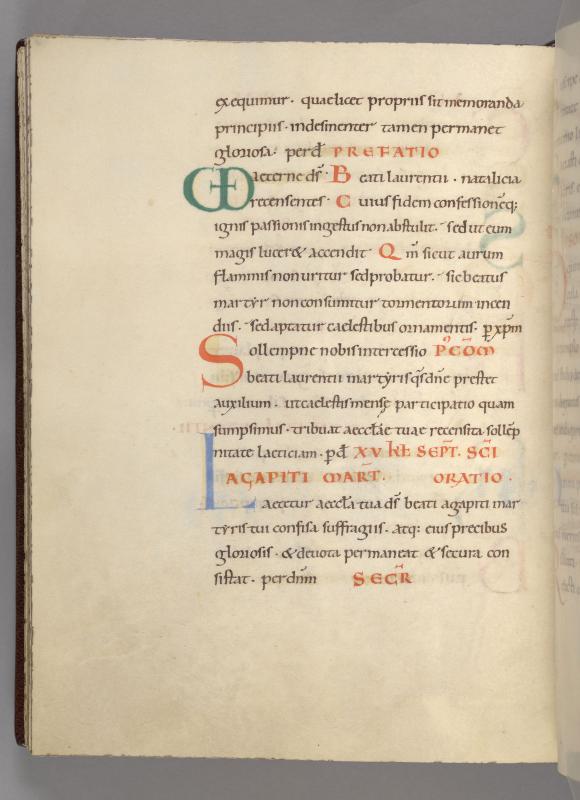 exequimur · quaelicet propriis sit memoranda
principiis · indesinenter tamen permanet
gloriosa · per dn̄ PREFATIO
VD aeterne ds̄ · Beati laurentii · natalicia
recensentes · Cuius fidem confessionēq;
ignis passionis ingestus non abstulit · sed ut eum
magis lucer& accendit Qm̄ sicut aurum
flammis non uritur sed probatur · sic beatus
martyr non consumitur tormentorum incen
diis · sed aptatur caelestibus ornamentis · p xp̄m
Sollempne nobis intercessio PᵒCOM̄
beati laurentii martyris qs̄ dn̄e prestet
auxilium · ut caelestis mensę participatio quam
sumpsimus · tribuat aecclae tuae recensita sollēp
nitate laeticiam · p dn̄ XV kƚ SEPT̄ · SC̄I
AGAPITI MART̄ · ORATIO ·
Laetetur aeccƚa tua ds̄ beati agapiti mar
tyris tui confisa suffragiis · atq: eius precibus
gloriosis · & deuota permaneat & secura con
sistat · per dnm̄ SECR̄